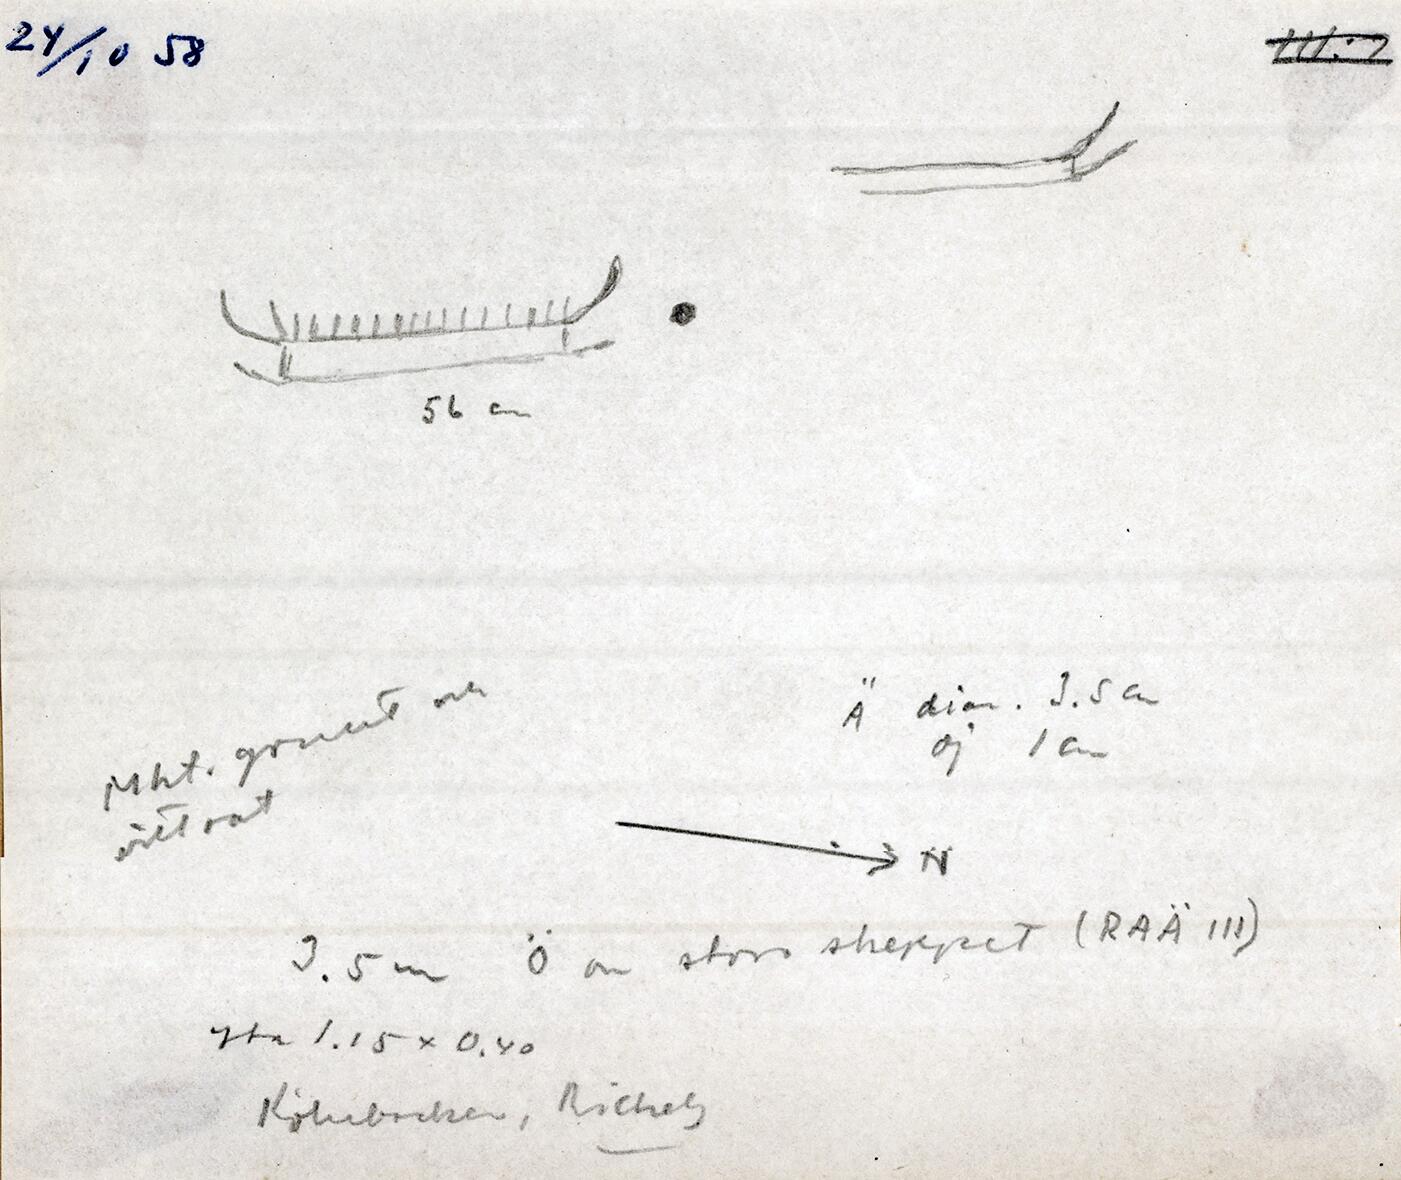 24/10 58
III:7
56 cm
Mkt. grunt och
vittrat
Ä diam. 3.5 cm
dj 1 cm
N
3.5 m Ö om stora skeppet (RAÄ III)
yta 1.15 x 0.40